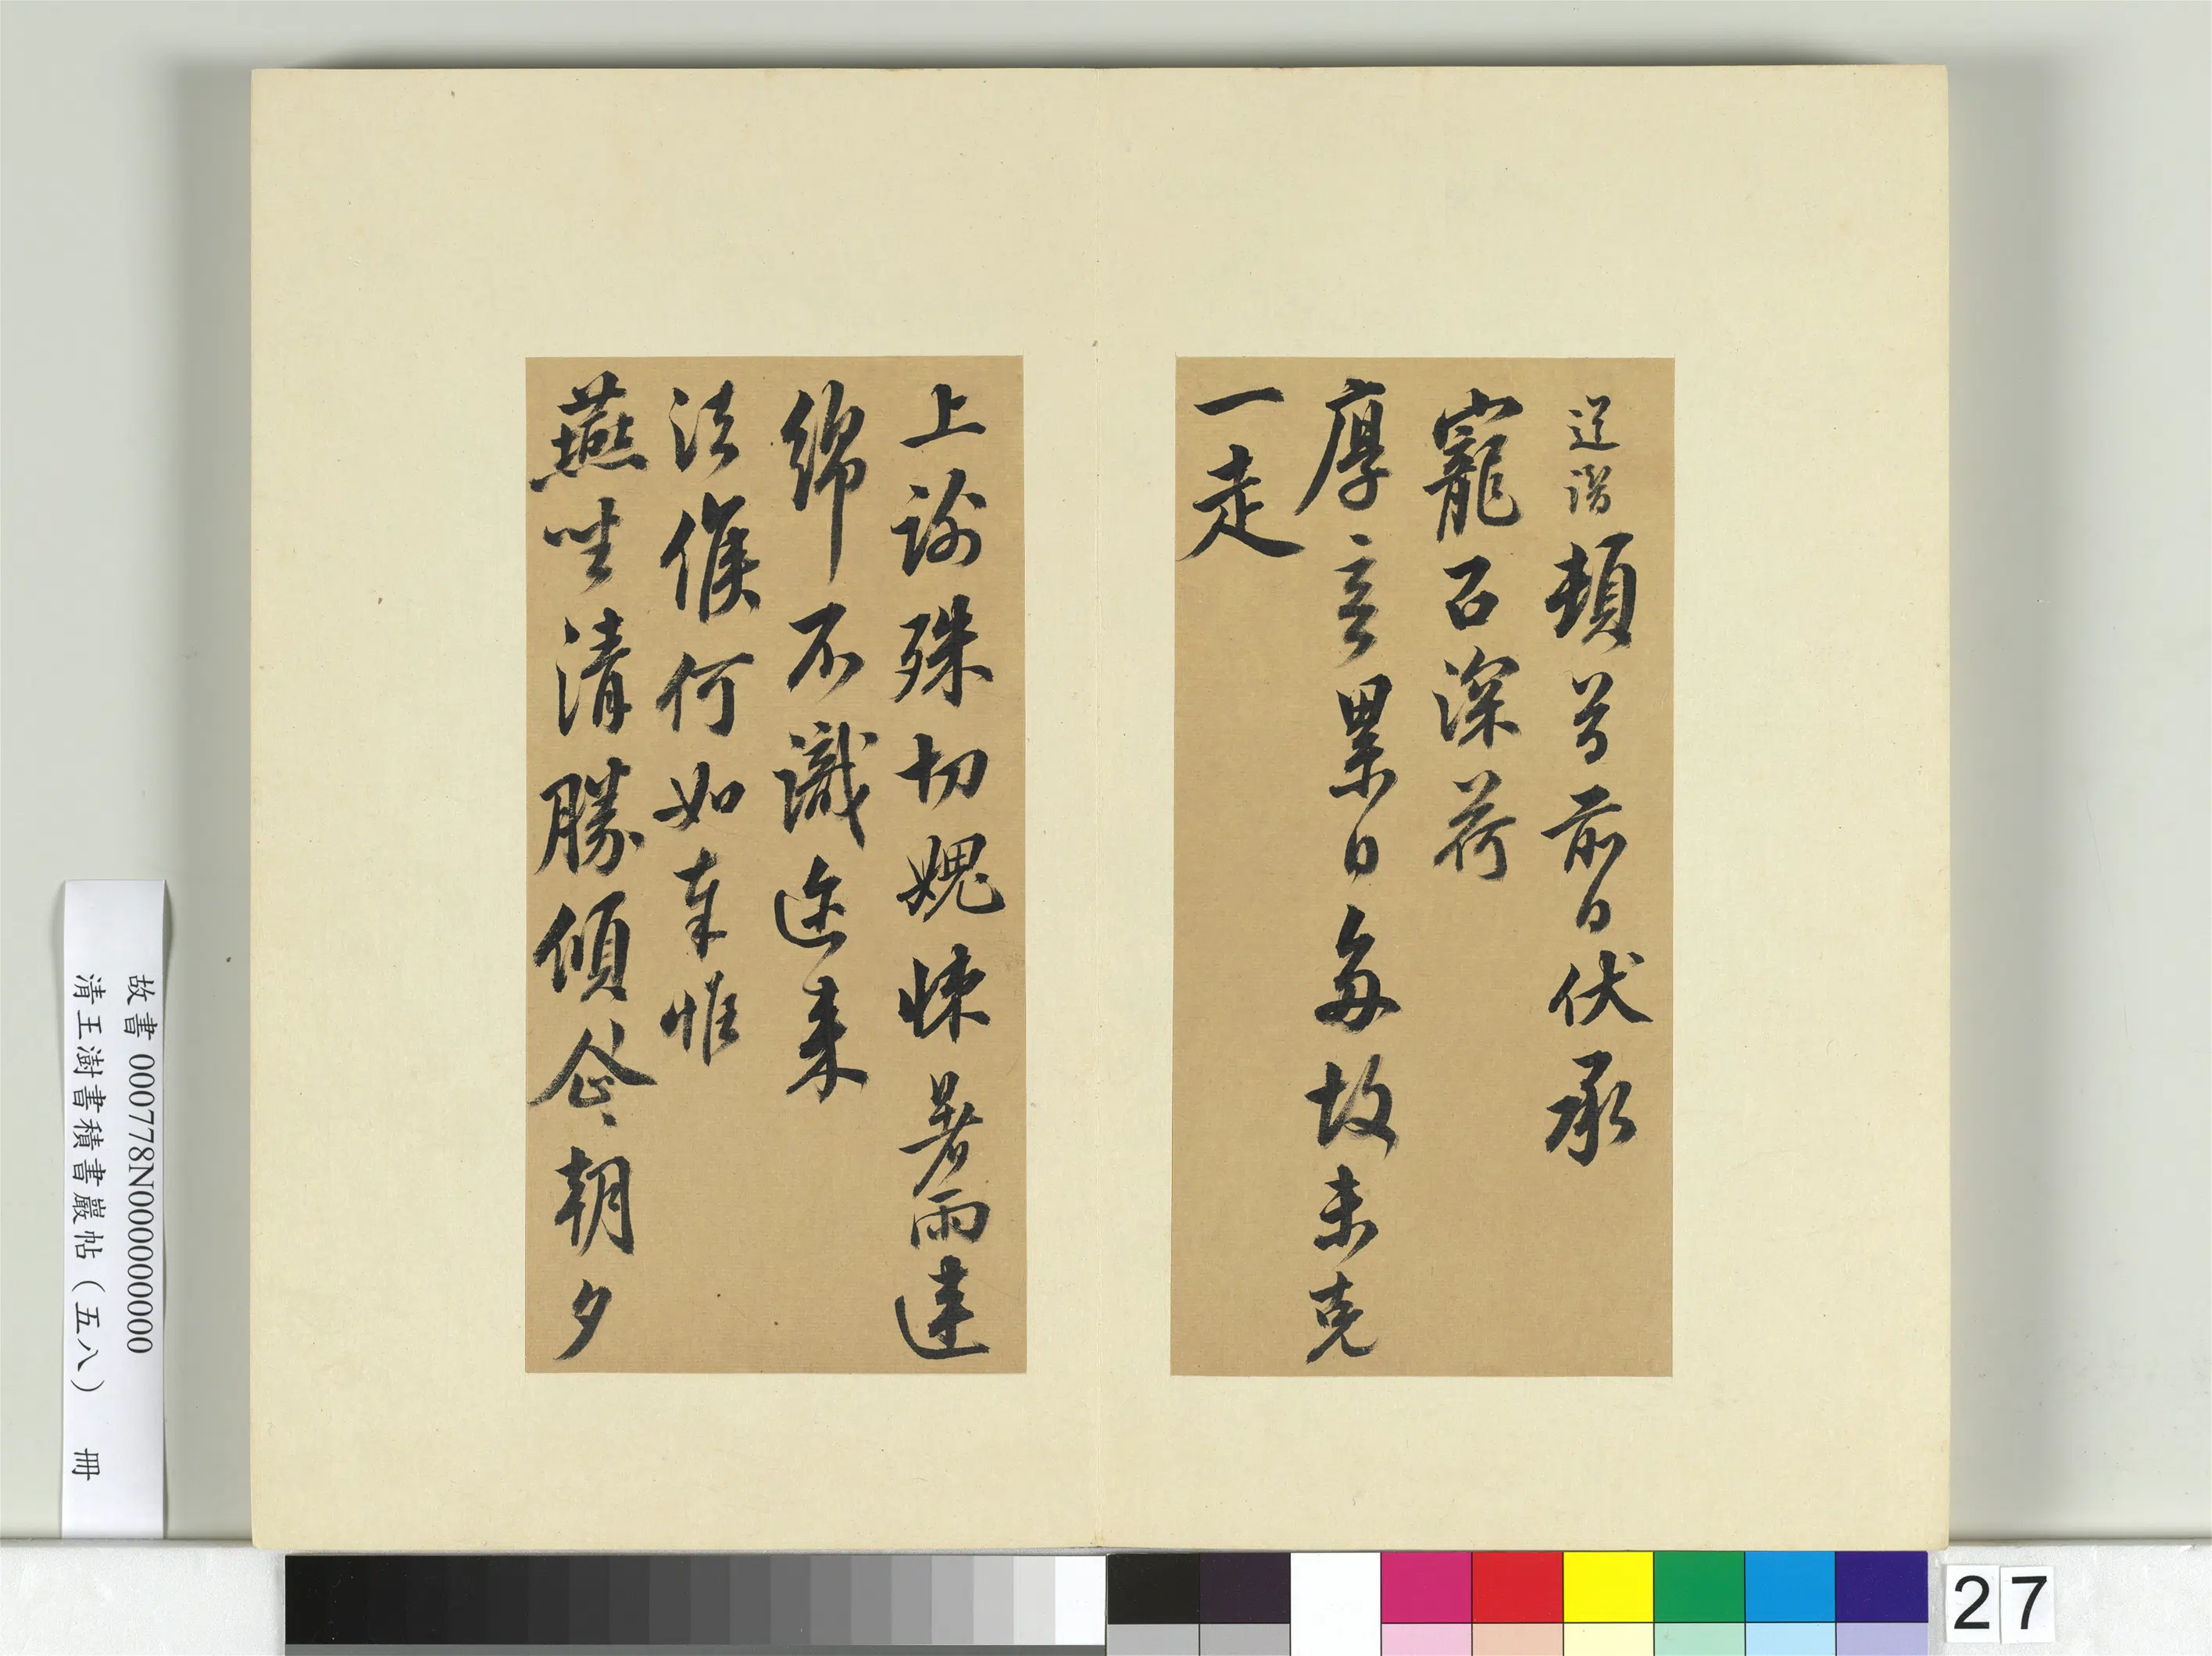 頓首前日伏承
寵召深荷
厚意累日多故未克
一走
上謝殊切媿悚暑雨連
綿不識邇來
法候何如奉惟
燕坐清勝傾企朝夕
故書 000778N000000000
清王澍書積書巖帖（五八） 冊
27